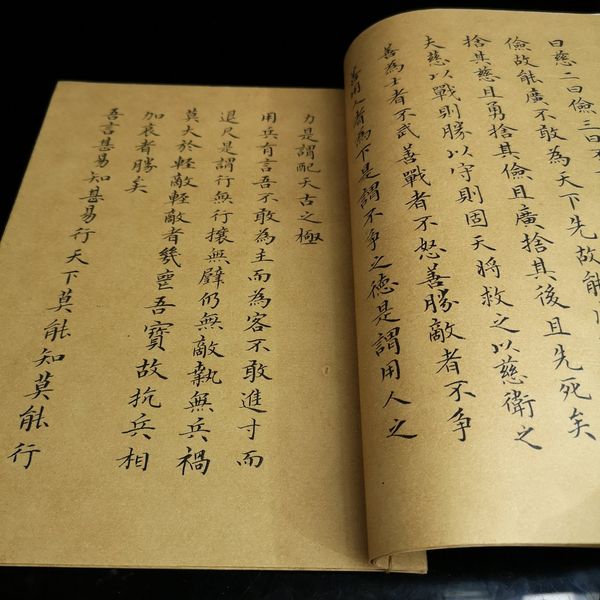 曰慈二曰儉三曰
儉故能廣不敢為天下先故能
捨其慈且勇捨其儉且廣捨其後且先死矣
夫慈以戰則勝以守則固天將救之以慈衛之
善為士者不武善戰者不怒善勝敵者不争
善用人者為下是謂不争之德是謂用人之
力是謂配天古之極
用兵有言吾不敢為主而為客不敢進寸而
退尺是謂行無行攘無臂仍無敵執無兵禍
莫大於輕敵輕敵者幾喪吾寶故抗兵相
加哀者勝矣
吾言甚易知甚易行天下莫能知莫能行